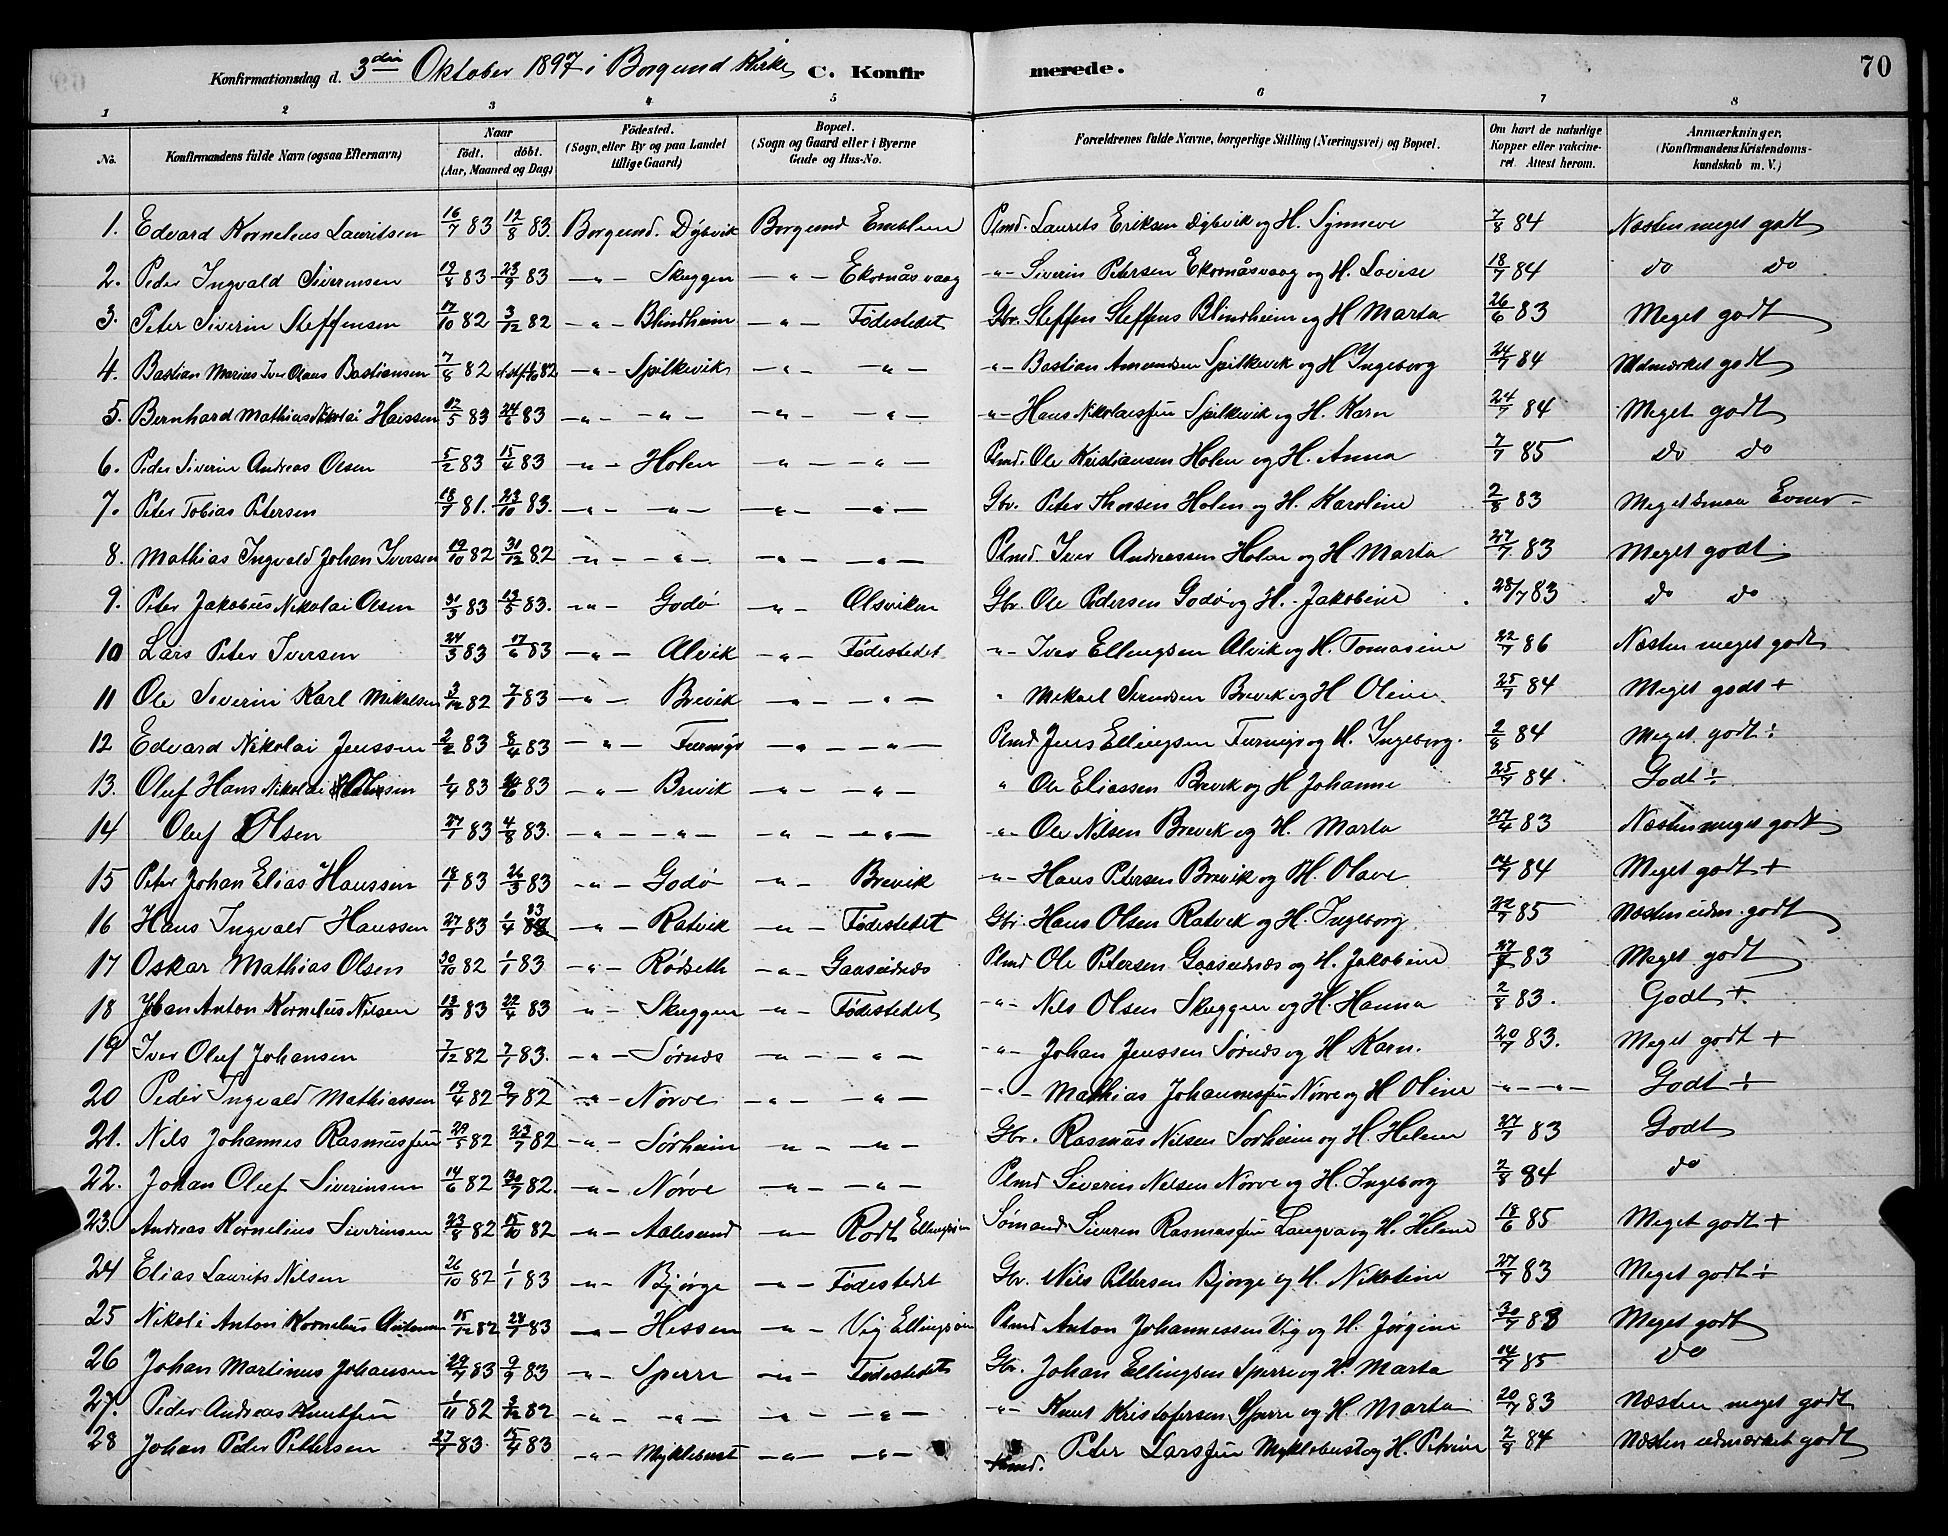 Konfirmationsdag d. 3die Oktober 1897 i Borgund Kirke C. Konfirmerede. 70
1 2 3 4 5 6 7 8
No. Konfirmandens fulde Navn (ogsaa Efternavn) Naar födt. döbt. (Aar, Maaned og Dag) Födested. (Sogn eller By og paa Landet tillige Gaard) Bopæl. (Sogn og Gaard eller i Byerne Gade og Hus-No. Forældrenes fulde Navne, borgerlige Stilling (Næringsvei) og Bopæl. Om havt de naturlige Kopper eller vakcineret. Attest herom. Anmærkninger. (Konfirmandens Kristendomskundskab m. V.)
1. Edvard Kornelius Lauritsen 16/7 83 12/8 83. Borgund. Dybvik Borgund Emblem Plmd. Laurits Eriksen Dybvik og H. Synneve 7/8 84 Næsten meget godt
2. Peder Ingvald Siverinsen 19/8 83 23/9 83 -"- Skuggen -"- Ekornåsvaag -"- Siverin Petersen Ekornåsvaag og H. Lovise 18/7 84 do do
3. Peter Siverin Steffensen 17/10 82 3/12 82 -"- Blindheim -"- Fødestedet Gbr. Steffen Steffens Blindheim og H Marta 26/6 83 Meget godt
4. Bastian Marius Iver Olaus Bastiansen 7/8 82 82 -"- Spilkevik -"- -"- -"- Bastian Amundsen Spilkevik og H Ingeborg 24/7 84 Udmærket godt
5. Bernhard Mathias Nikolai Hanssen 12/5 83 24/6 83 -"- -"- -"- -"- -"- Hans Nikolaissen Spilkevik og H. Karn 24/7 84 Meget godt
6. Peder Siverin Andreas Olsen 5/2 83 15/4 83 -"- Holen -"- -"- Plmd. Ole Kristiansen Holen og H. Anna 7/7 85 do do
7. Peter Tobias Petersen 18/7 81. 23/10 83. -"- -"- -"- -"- Gbr. Peter Thorsen Holen og H. Karoline 2/8 83 Meget smaa Evner
8. Mathias Ingvald Johan Iversen 19/10 82 31/12 82 -"- -"- -"- -"- Plmd. Iver Andreassen Holen og H Marta 27/7 83 Meget godt.
9. Peter Jakobus Nikolai Olsen 31/3 83 13/5 83. -"- Godø -"- Olsviken Gbr. Ole Pedersen Godø og H. Jakobine 28/7 83 do do
10 Lars Peter Iversen 24/3 83 17/6 83 -"- Alvik -"- Fødestedet -"- Iver Ellingsen Alvik og H. Tomasine 22/7 86 Næsten meget godt
11 Ole Siverin Karl Mikalsen 3/12 82 7/1 83 -"- Brevik -"- -"- " Mikael Brevik og H Oline 25/7 84 Meget godt +
12 Edvard Nikolai Jenssen 2/2 83 8/4 83 -"- -"- -"- Plmd Jens Ellingsen og H. Ingeborg. 2/8 84 Meget godt ÷
13. Oluf Hans Nikolai Olsen 1/4 83 83 -"- Brevik -"- -"- " Ole Eliassen Brevik og H Johanne 25/7 84. Godt ÷
14 Oluf Olsen 27/7 83 4/8 83. -"- -"- -"- -"- -"- Ole Nilsen Brevik og H. Marta 27/4 83 Næsten meget godt
15 Peter Johan Elias Hanssen 18/1 83 26/3 83 -"- Godø -"- Brevik -"- Hans Petersen Brevik og H. Olave 14/7 84 Meget godt +
16 Hans Ingvald Hanssen 27/1 83 1/4 83 -"- Ratvik -"- Fødestedet Gbr. Hans Olsen Ratvik og H. Ingeborg 22/7 85 Næsten udm. godt
17 Oskar Mathias Olsen 30/10 82 1/1 83 -"- Rødseth -"- Gaaseidnes Plmd Ole Petersen Gaaseidnes og H. Jakobine 27/7 83 Meget godt
18 Johan Anton Kornelius Nilsen 83 22/4 83 -"- Skuggen -"- Fødestedet -"- Nils Olsen Skuggen og H. Hanna 2/8 83. Godt +
19 Iver Oluf Johansen 7/12 82 7/1 83. -"- Sørnes -"- -"- -"- Johan Jenssen Sørnes og H Karn. 20/7 83. Meget godt +
20 Peder Ingvald Mathiassen 19/4 82 9/7 82 -"- Nørve -"- -"- -"- Mathias Johannessen Nørve og H Oline -"- -"- Godt ÷
21. Nils Johannes Rasmussen 29/5 82 23/7 82 -"- Sørheim -"- -"- Gbr. Rasmus Nilsen Sørheim og H. Helene 27/7 83 Godt
22. Johan Oluf Siverinsen 14/6 82 30/7 82. -"- Nørve -"- -"- Plmd Siverin Nilsen Nørve og H. Ingeborg 2/8 84 do
23. Andreas Kornelius Siverinsen 23/8 82 15/10 82 -"- Aalesund -"- Rødt Ellingsøen Sømand Siveren Rasmussen Langva og H. Helene 18/6 85 Meget godt +
24 Elias Laurits Nilsen 26/10 82 1/1 83 -"- Bjørge -"- Fødestedet Gbr. Nils Pettersen Bjørge og H. Nikoline 27/7 83 Meget godt ÷
25 Nikoli Anton Kornelius 15/12 82 28/1 83 -"- Hessen -"- Vig Ellingsøen Plmd Anton Johannessen Vig og H. Jørgine 30/7 83 Meget godt
26 Johan Martinus Johanssen 29/7 83 9/9 83 -"- Sperre -"- Fødestedet Gbr. Johan Ellingsen Sperre og H. Marta 14/7 85 do
27. Peder Andreas Knutsen 1/11 82 3/12 82 -"- -"- -"- -"- -"- Knut Kristofersen Sperre og H. Marta 20/7 83 Næsten meget godt
28 Johan Peder Pettersen 27/1 83. 15/4 83 -"- Myklebust -"- -"- Plmd. Peter Larssen Myklebust og H. Petrine 2/8 84 Næsten udmærket godt